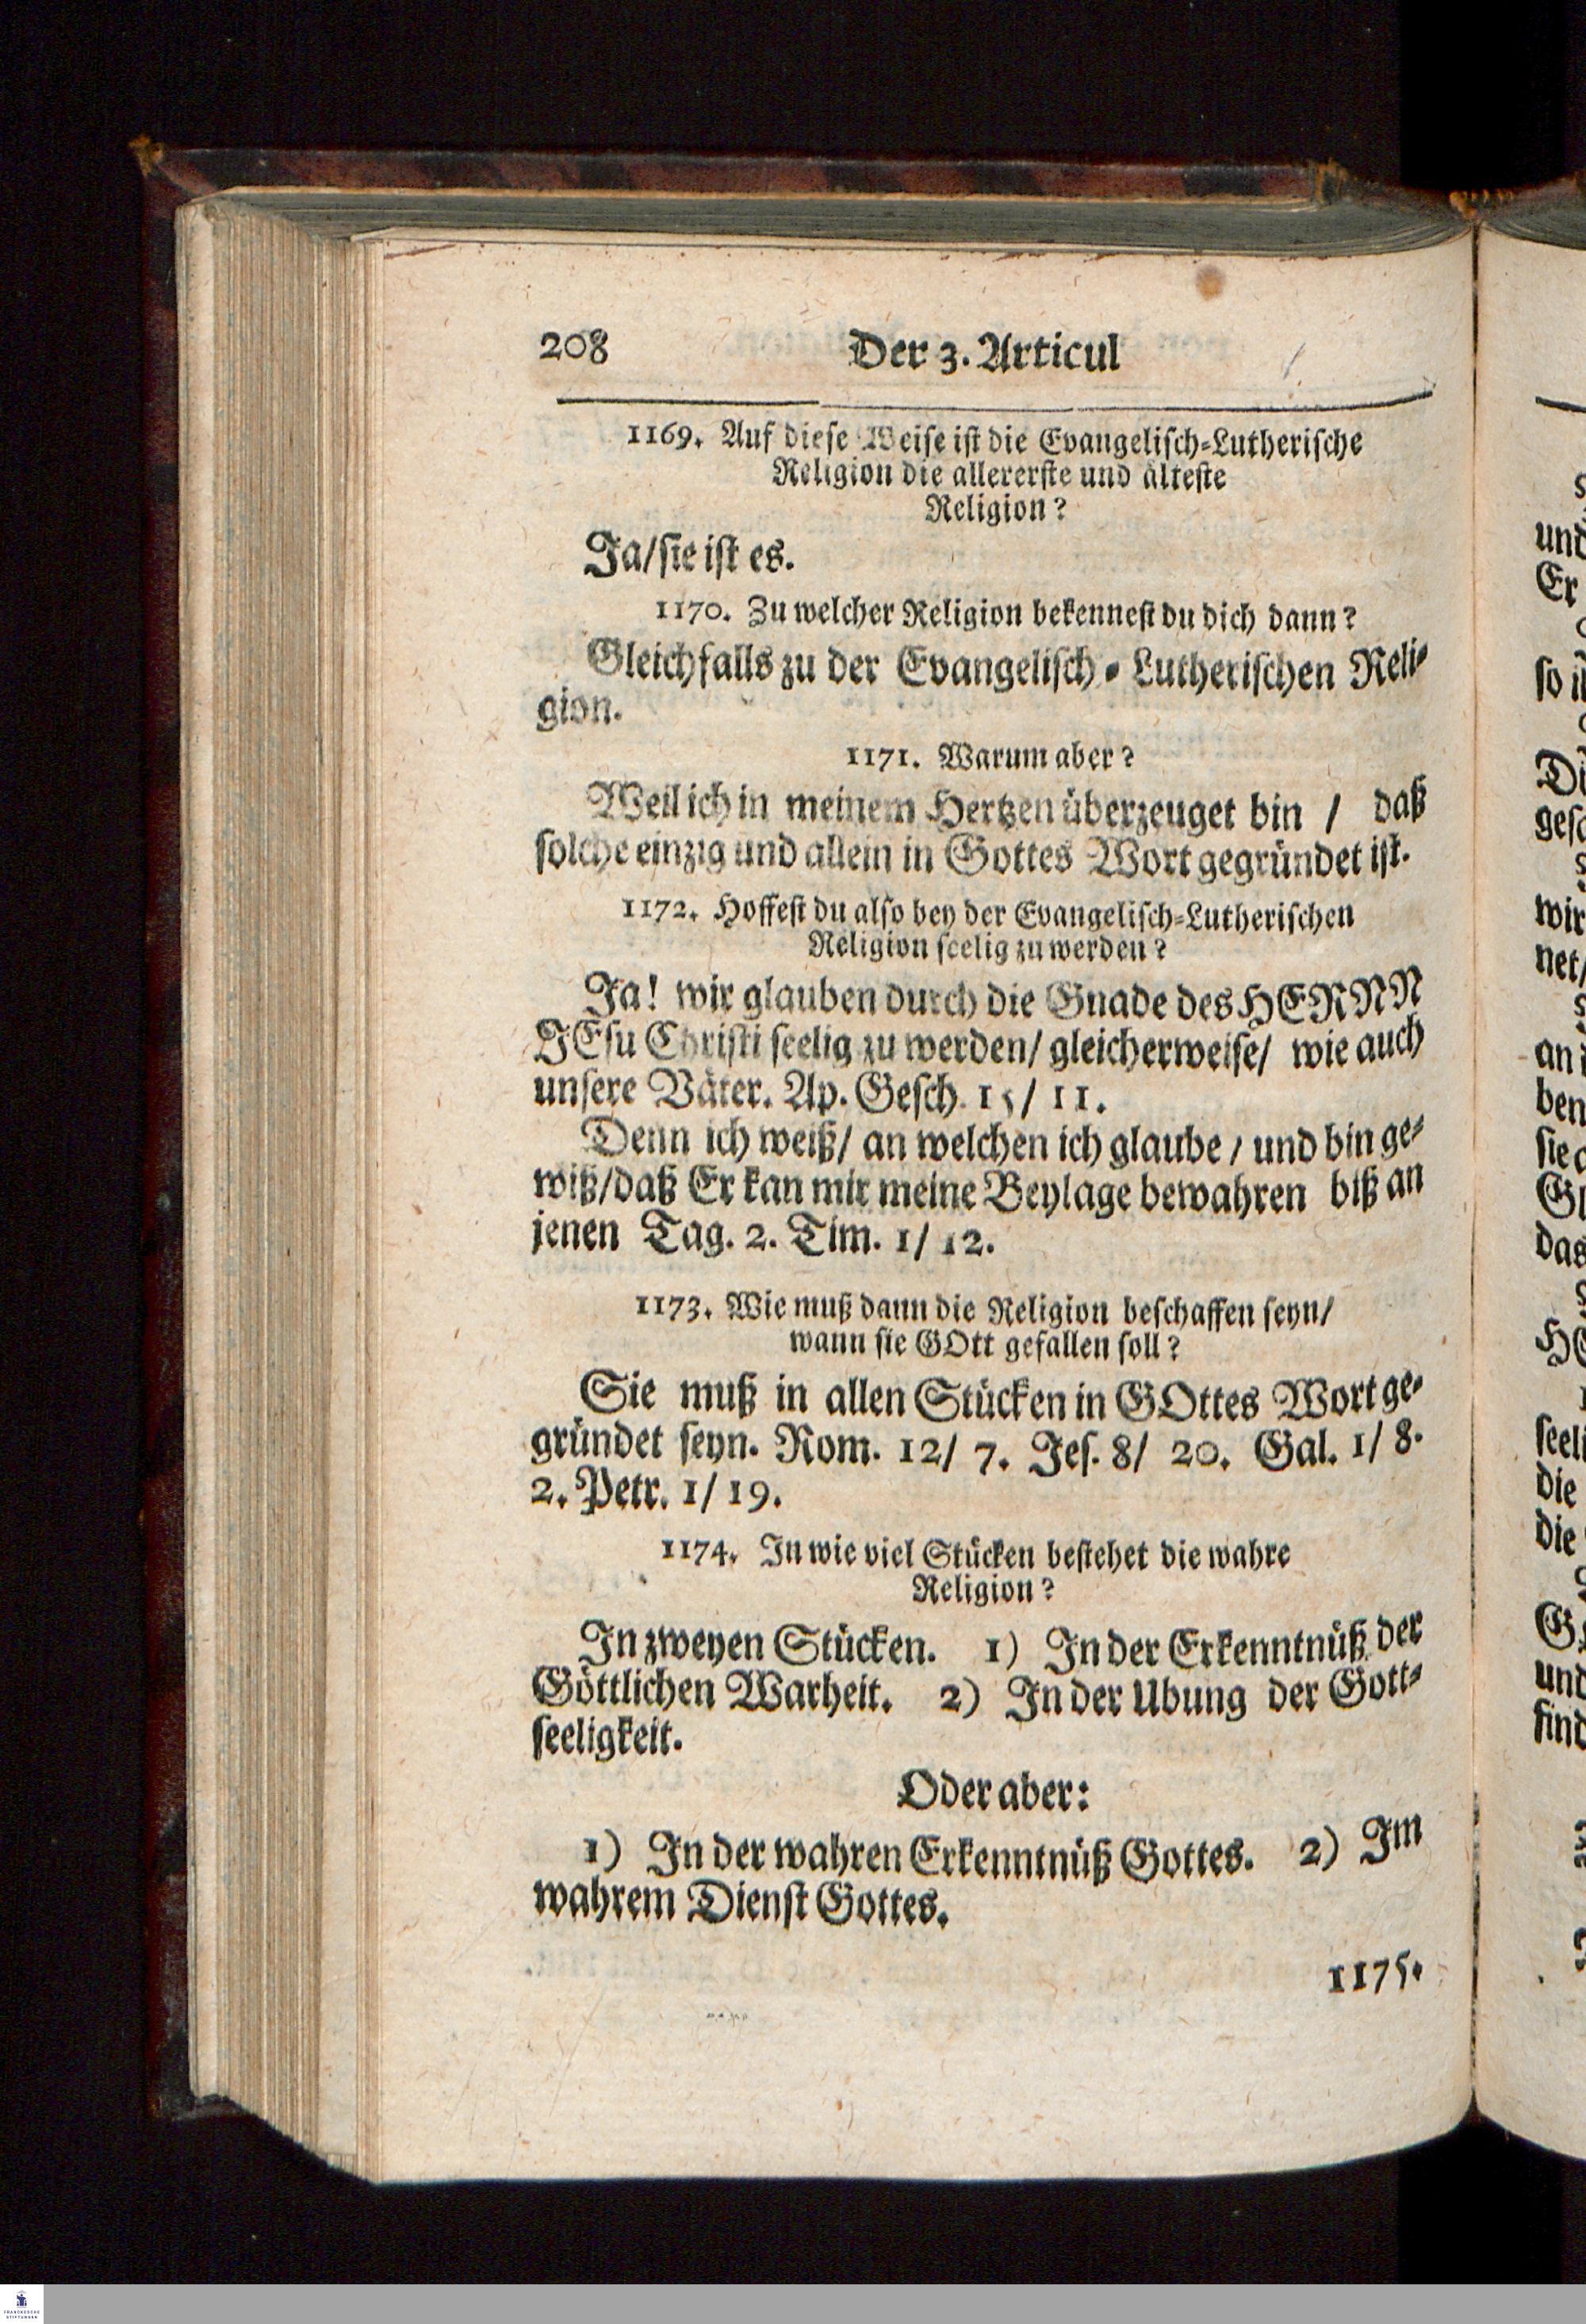 208 Der 3. Articul
1169. Auf diese Weise ist die Evangelisch-Lutherische
Religion die allererste und älteste
Religion?
Ja/ sie ist es.
1170. Zu welcher Religion bekennest du dich dann?
Gleichfalls zu der Evangelisch-Lutherischen Reli-
gion.
1171. Warum aber?
Weil ich in meinem Hertzen überzeuget bin / daß
solche einzig und allein in Gottes Wort gegründet ist.
1172. Hoffest du also bey der Evangelisch-Lutherischen
Religion seelig zu werden?
Ja! wir glauben durch die Gnade des HERRN
JEsu Christi seelig zu werden/ gleicherweise/ wie auch
unsere Väter. Ap. Gesch. 15/ 11.
Denn ich weiß/ an welchen ich glaube / und bin ge-
wiß/ daß Er kan mir meine Beylage bewahren biß an
jenen Tag. 2. Tim. 1/ 12.
1173. Wie muß dann die Religion beschaffen seyn/
wann sie GOtt gefallen soll?
Sie muß in allen Stücken in GOttes Wort ge-
gründet seyn. Rom. 12/ 7. Jes. 8/ 20. Gal. 1/ 8.
2. Petr. 1/ 19.
1174. In wie viel Stücken bestehet die wahre
Religion?
In zweyen Stücken. 1) In der Erkenntnüß der
Göttlichen Warheit. 2) In der Ubung der Gott-
seeligkeit.
Oder aber:
1) In der wahren Erkenntnüß Gottes. 2) Im
wahrem Dienst Gottes.
1175.
und
Er
so
Di
gesc
wir
net/
an
ben
sie
Gl
das
seeli
die
die
und
find
FRANCKESCHE
STIFTUNGEN